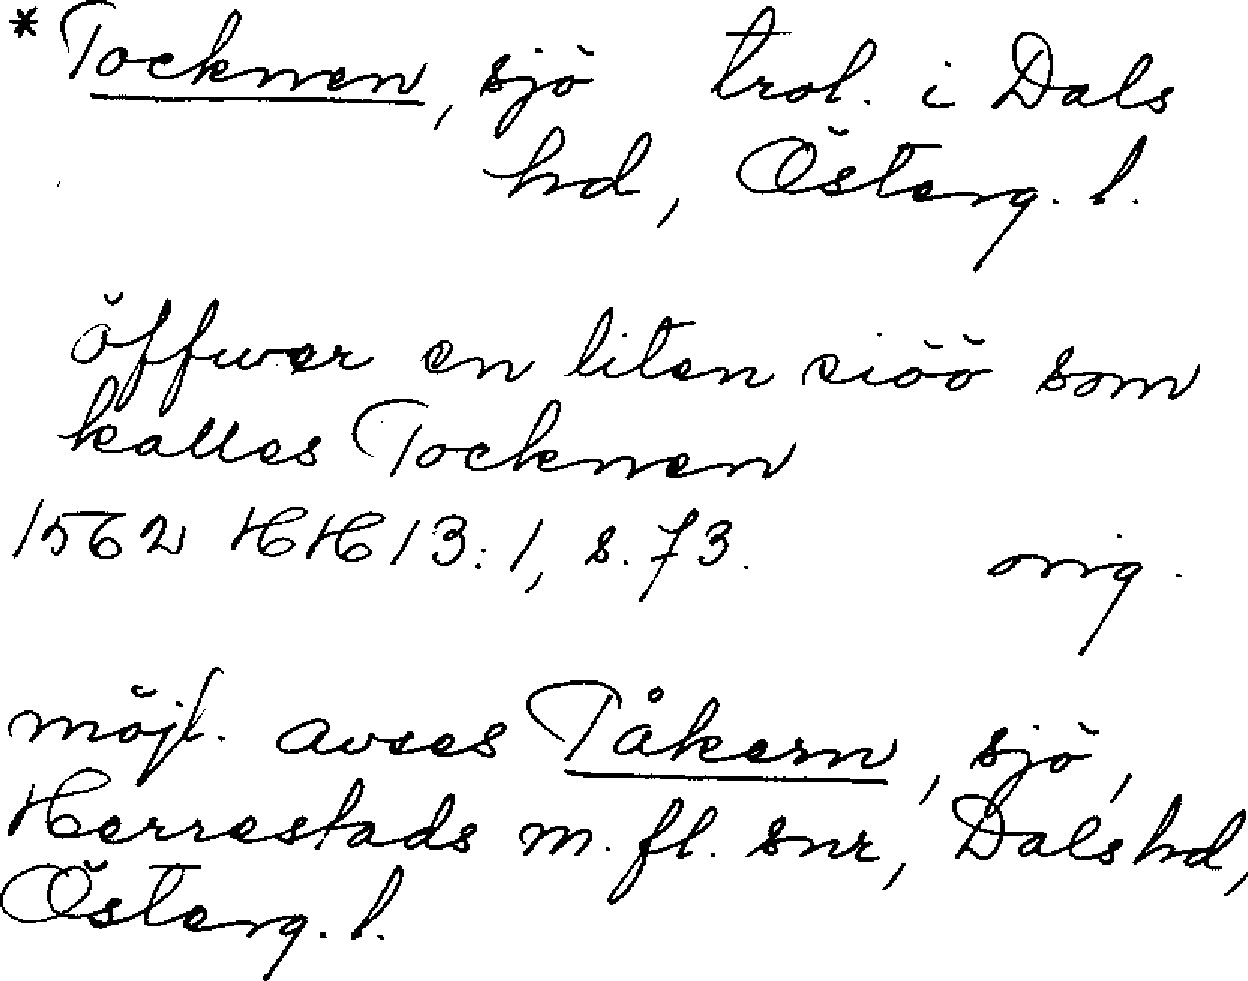 * Tocknen, sjö trol. i Dals
hd, Österg. l.
öffwer en liten siöö som
kalles Tocknen
1562 HH 13:1, s. 73. orig.
möjl. avses Tåkern, sjö,
Herrestads m. fl. snr, Dals hd,
Österg. l.